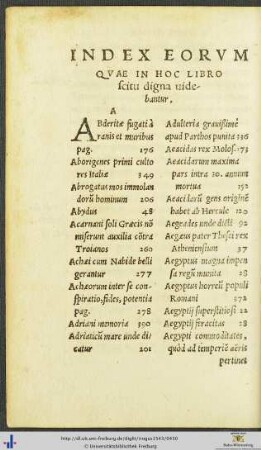 INDEX EORVM
QVAE IN HOC LIBRO
scitu digna uide-
bantur.
A
ABderitæ fugati à
ranis et muribus
pag. 176
Aborigenes primi culto
res Italiæ 349
Abrogatus mos immolan
dorũ hominum 206
Abydus 48
Acarnani soli Græcis nõ
miserunt auxilia cõtra
Troianos 260
Achæi cum Nabide belli
gerantur 277
Achæorum inter se con-
spiratio, fides, potentia
pag. 278
Adriani memoria 390
Adriaticũ mare unde di
catur 201
Adulteria grauissimè
apud Parthos punita 336
Aeacidas rex Molos. 173
Aeacidarum maxima
pars intra 30. annum
mortua 152
Aeacidarũ gens originẽ
habet ab Hercule 120
Aegeades unde dicti 92
Aegæus pater Thesei rex
Atheniensium 37
Aegyptus magna impen
sa regũ munita 28
Aegyptus horreũ populi
Romani 372
Aegyptij superstitiosi 22
Aegyptij feracitas 28
Aegypti commoditates,
quòd ad temperiẽ aëris
pertinet
© Universitätsbibliothek Freiburg